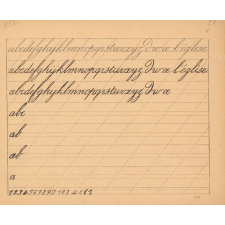 abcdefghijklmnopqrstuvxyz w æ l'église
abcdefghijklmnopqrstuvxyz w æ l'église
abcdefghijklmnopqrstuvxyz w æ
abc
ab
ab
a
1 2 3 4 5 6 7 8 9 0 1 2 3